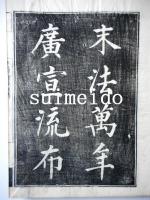 末法萬年
廣宣流布
suimeido